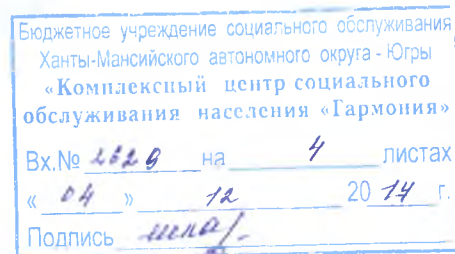 Бюджетное учреждение социального обслуживания
Ханты-Мансийского автономного округа - Югры
«Комплексный центр социального
обслуживания населения «Гармония»
Вх.№ 2629 на 4 листах
« 04 » 12 2014 г.
Подпись